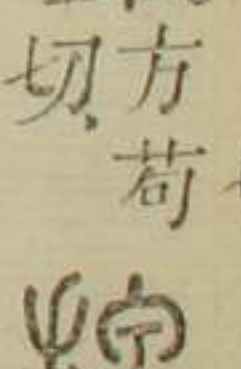 方苟
切